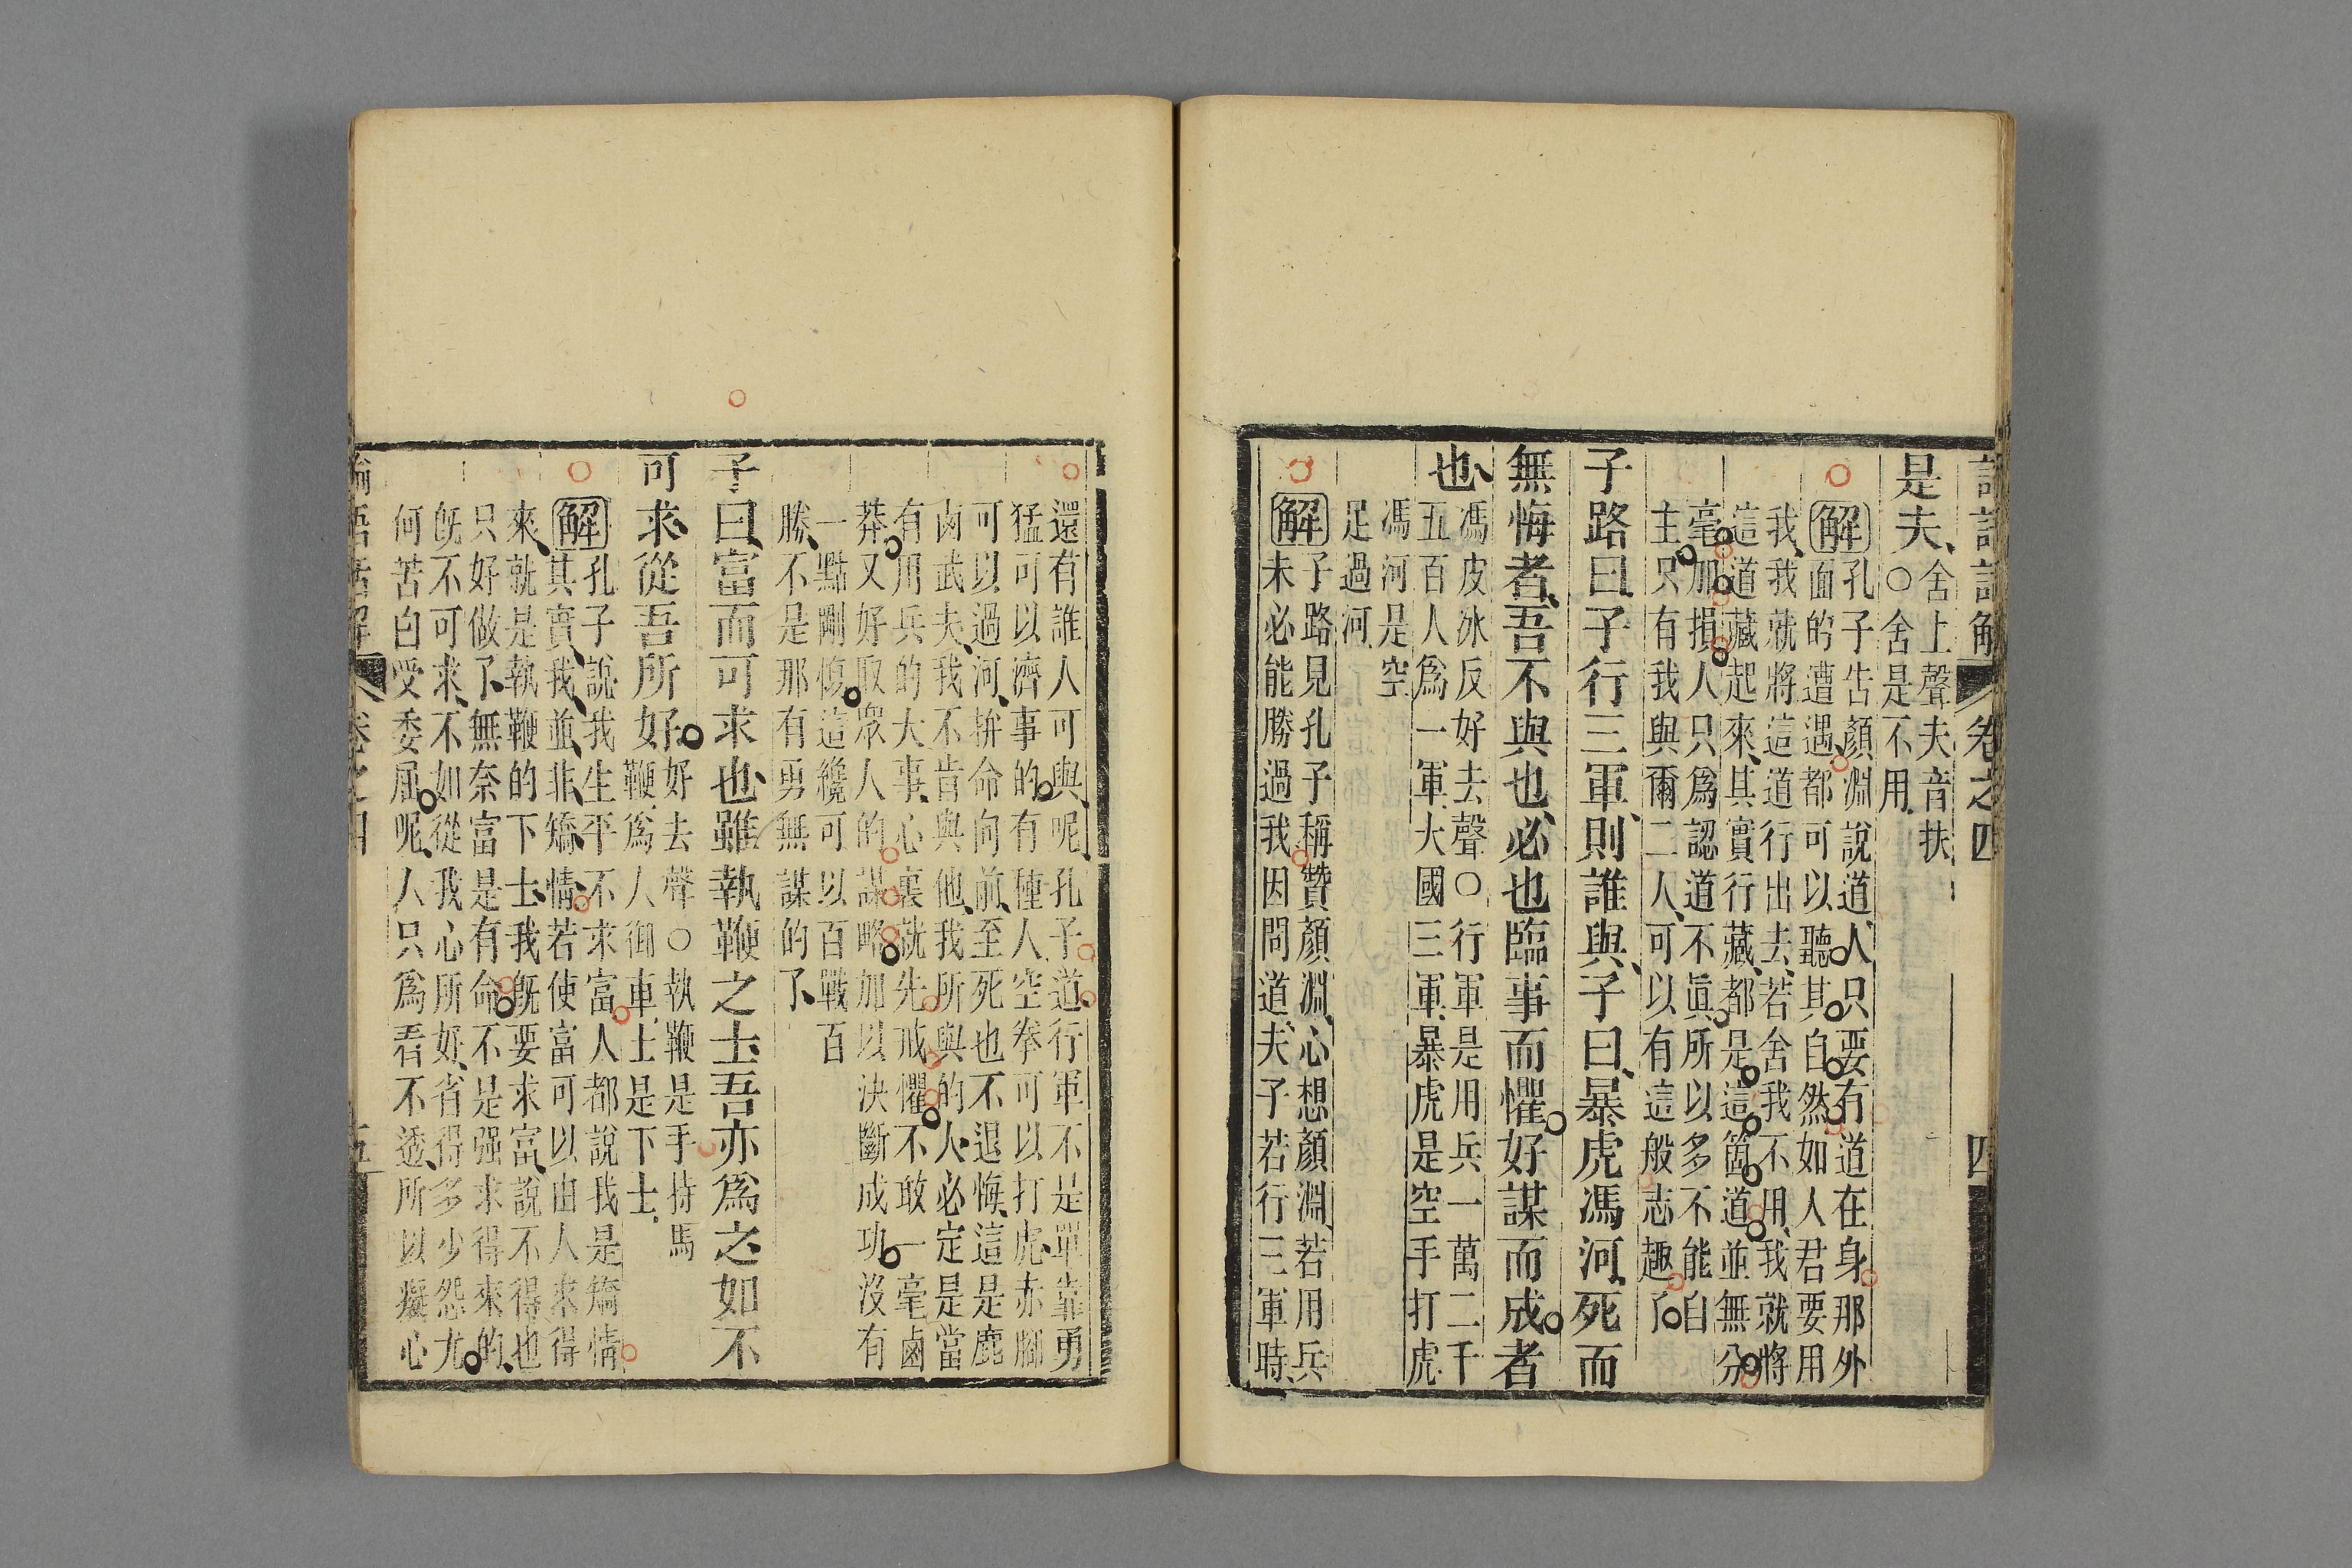 卷之四 四
是夫
舍上聲夫音扶
○舍是不用
解孔子告顏淵說道人只要有道在身那外
面的遭遇都可以聽其自然如人君要用
我我就將這道行出去若舍我不用我就將
這道藏起來其實行藏都是這箇道並無分
毫加損人只爲認道不眞所以多不能自
主只有我與爾二人可以有這般志趣了
子路曰子行三軍則誰與子曰暴虎馮河死而
無悔者吾不與也必也臨事而懼好謀而成者
也
馮皮冰反好去聲○行軍是用兵一萬二千
五百人爲一軍大國三軍暴虎是空手打虎
馮河是空
足過河
解子路見孔子稱贊顏淵心想顏淵若用兵
未必能勝過我因問道夫子若行三軍時
還有誰人可與呢孔子道行軍不是單靠勇
猛可以濟事的有種人空拳可以打虎赤腳
可以過河拚命向前至死也不退悔這是麤
鹵武夫我不肯與他我所與的人必定是當
有用兵的大事心裏就先戒懼不敢一毫鹵
莽又好取眾人的謀略加以決斷成功沒有
一點剛愎這纔可以百戰百
勝不是那有勇無謀的了
子曰富而可求也雖執鞭之士吾亦爲之如不
可求從吾所好
好去聲○執鞭是手持馬
鞭爲人御車士是下士
解孔子說我生平不求富人都說我是矯情
其實我並非矯情若使富可以由人求得
來就是執鞭的下士我旣要求富說不得也
只好做了無奈富是有命不是强求得來的
旣不可求不如從我心所好省得多少怨尤
何苦白受委屈呢人只爲看不透所以癡心
論語話解 卷之四 五